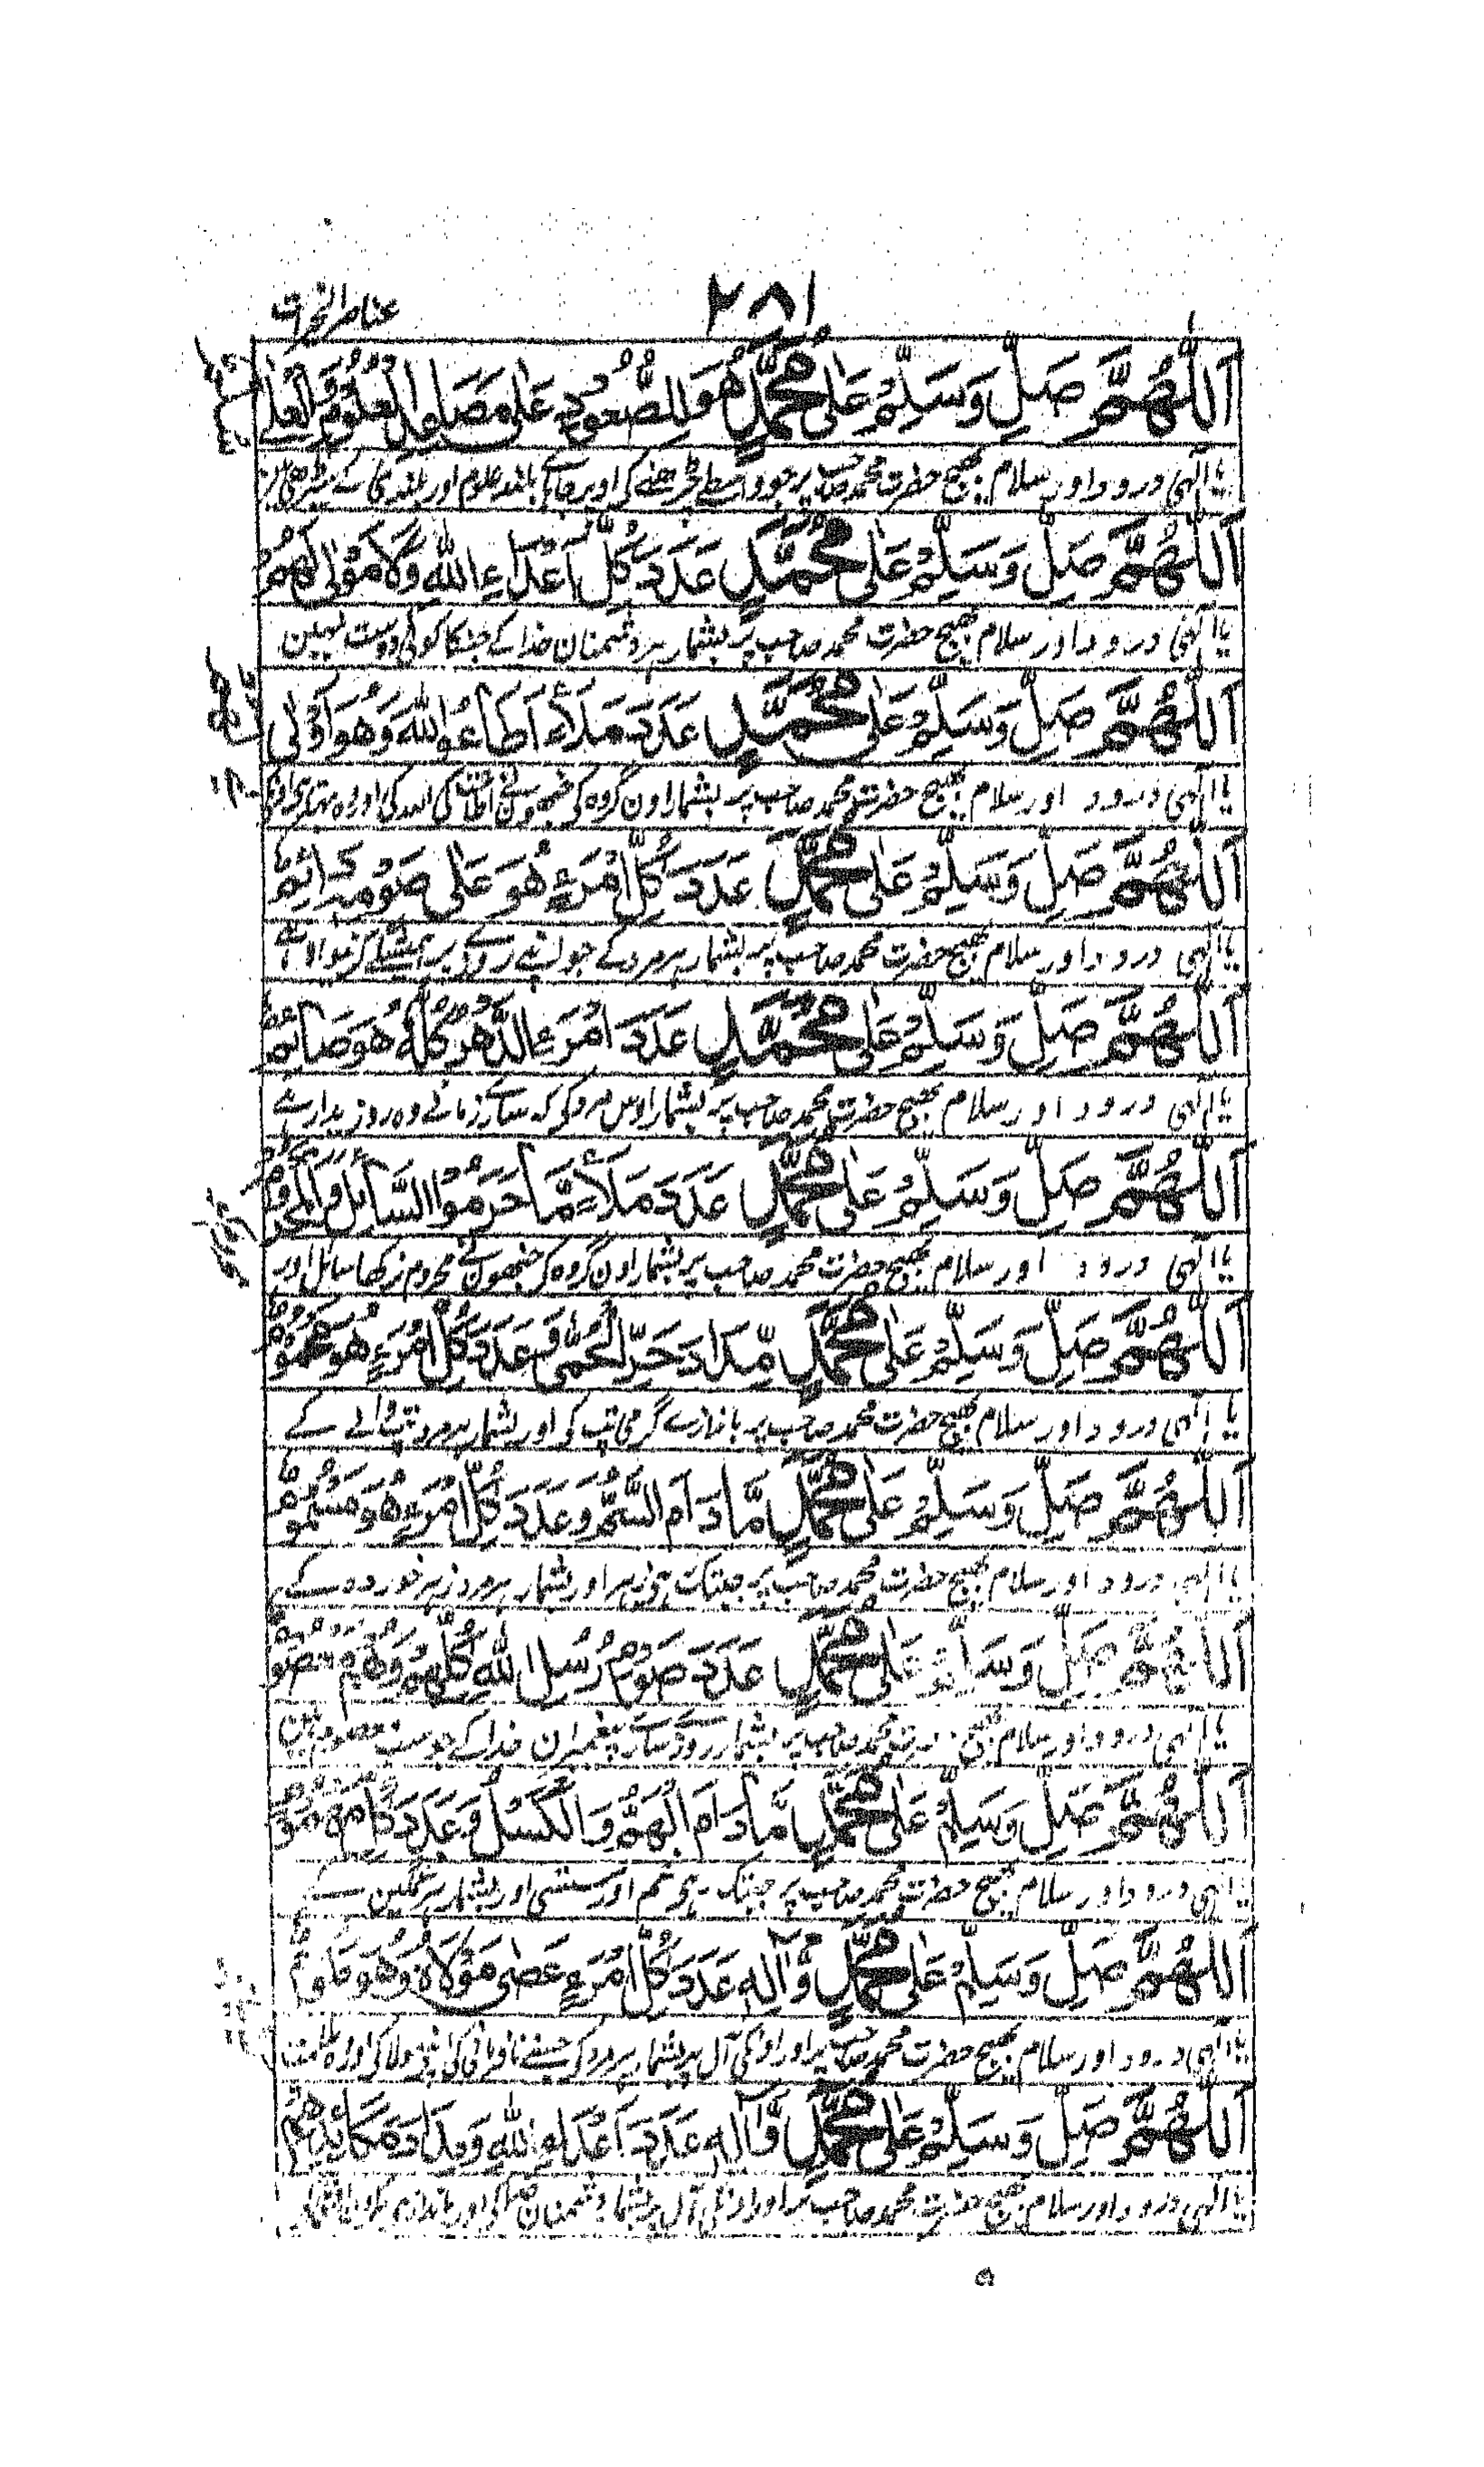 ۲۸۱
عناصر الخیرات
اَللّٰهُمَّ صَلِّ وَسَلِّمْ عَلٰى مُحَمَّدٍ هُوَ لِلصُّعُوْدِ عَلٰى
یا الٰہی درود اور سلام بھیج حضرت محمد صاحب پر جو واسطے چڑھنے کی اوپر بلند علوم اور بلندی کے
اَللّٰهُمَّ صَلِّ وَسَلِّمْ عَلٰى مُحَمَّدٍ عَدَدَ كُلِّ اَعْدَاءِ اللّٰهِ وَلَا مَوْلٰى لَهُمْ
یا الٰہی درود اور سلام بھیج حضرت محمد صاحب پر بشمار ہر دشمنان خدا کے جنکا کوئی دوست نہین
اَللّٰهُمَّ صَلِّ وَسَلِّمْ عَلٰى مُحَمَّدٍ عَدَدَ مَلَأٍ اَطَاعُوا اللّٰهَ وَهُوَ اَوْلٰى
یا الٰہی درود اور سلام بھیج حضرت محمد صاحب پر بشمار اون گروہ کی جنہون نے اطاعت کی اللہ کی اور وہ بہتر
اَللّٰهُمَّ صَلِّ وَسَلِّمْ عَلٰى مُحَمَّدٍ عَدَدَ كُلِّ امْرَءٍ هُوَ عَلٰى صَوْمِهٖ دَائِمٌ
یا الٰہی درود اور سلام بھیج حضرت محمد صاحب پر بشمار ہر مرد کے جو اپنے روزے پر ہمیشگی کرنیوالا ہے
اَللّٰهُمَّ صَلِّ وَسَلِّمْ عَلٰى مُحَمَّدٍ عَدَدَ امْرَءٍ الدَّهْرَ كُلَّهٗ هُوَ صَائِمٌ
یا الٰہی درود اور سلام بھیج حضرت محمد صاحب پر بشمار اوس مرد کی کہ سارے زمانے وہ روزیدار ہے
اَللّٰهُمَّ صَلِّ وَسَلِّمْ عَلٰى مُحَمَّدٍ عَدَدَ مَلَأٍ مَّا حَرَمُوا السَّائِلَ وَالْمَحْرُوْمَ
یا الٰہی درود اور سلام بھیج حضرت محمد صاحب پر بشمار اون گروہ کی جنھون نے محروم نرکھا سائل اور
اَللّٰهُمَّ صَلِّ وَسَلِّمْ عَلٰى مُحَمَّدٍ مِّدَادَ حَرِّ الْحُمّٰى وَعَدَدَ كُلِّ امْرَءٍ هُوَ مَحْمُوْمٌ
یا الٰہی درود اور سلام بھیج حضرت محمد صاحب پر باندازے گرمی تپ کی اور بشمار ہر مرد تپ والے کے
اَللّٰهُمَّ صَلِّ وَسَلِّمْ عَلٰى مُحَمَّدٍ مَّا دَامَ السَّمُّ وَعَدَدَ كُلِّ امْرَءٍ هُوَ مَسْمُوْمٌ
یا الٰہی درود اور سلام بھیج حضرت محمد صاحب پر جبتک ہی زہر اور بشمار ہر مرد زہر خوردہ کے
اَللّٰهُمَّ صَلِّ وَسَلِّمْ عَلٰى مُحَمَّدٍ عَدَدَ صَوْمِ رُسُلِ اللّٰهِ كُلِّهِمْ وَهُمْ
یا الٰہی درود اور سلام بھیج حضرت محمد صاحب پر بشمار روزے سارے پیغمبران خدا کے
اَللّٰهُمَّ صَلِّ وَسَلِّمْ عَلٰى مُحَمَّدٍ مَّا دَامَ الْهَمُّ وَالْكَسَلُ وَعَدَدَ كُلِّ مَهْمُوْمٍ
یا الٰہی درود اور سلام بھیج حضرت محمد صاحب پر جبتک ہی غم اور سستی اور بشمار ہر غمگین کے
اَللّٰهُمَّ صَلِّ وَسَلِّمْ عَلٰى مُحَمَّدٍ وَّاٰلِهٖ عَدَدَ كُلِّ امْرَءٍ عَصٰى مَوْلَاهُ وَهُوَ مَلُوْمٌ
یا الٰہی درود اور سلام بھیج حضرت محمد صاحب پر اور اونکی آل پر بشمار ہر مرد کی جسنے نافرمانی کی اپنے مولا کی اور وہ
اَللّٰهُمَّ صَلِّ وَسَلِّمْ عَلٰى مُحَمَّدٍ وَّاٰلِهٖ عَدَدَ اَعْدَاءِ اللّٰهِ وَمِدَادَ مَكَائِدِهِمْ
یا الٰہی درود اور سلام بھیج حضرت محمد صاحب پر اور اونکی آل پر بشمار دشمنان خدا کی اور باندازے